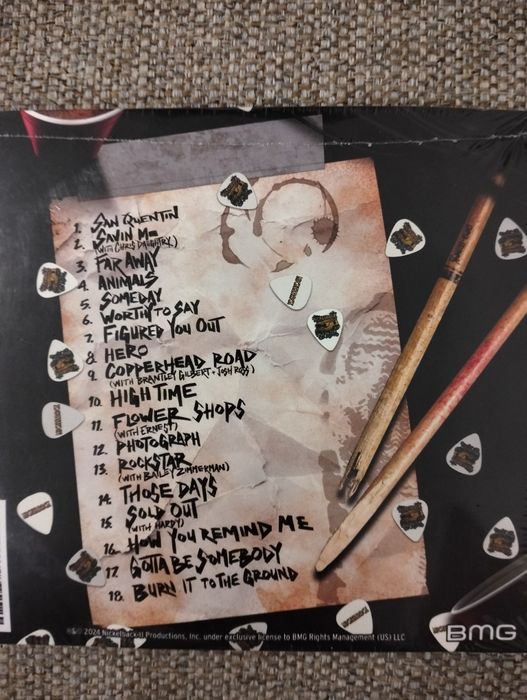 1. SAN QUENTIN
2. SAVIN ME
(WITH CHRIS DAUGHTRY)
3. FAR AWAY
4. ANIMALS
5. SOMEDAY
6. WORTHY TO SAY
7. FIGURED YOU OUT
8. HERO
9. COPPERHEAD ROAD
(WITH BRANTLEY GILBERT + JOSH ROSS)
10. HIGH TIME
11. FLOWER SHOPS
(WITH ERNEST)
12. PHOTOGRAPH
13. ROCKSTAR
(WITH BAILEY ZIMMERMAN)
14. THOSE DAYS
15. SOLD OUT
(WITH HARDY)
16. HOW YOU REMIND ME
17. GOTTA BE SOMEBODY
18. BURN IT TO THE GROUND
℗© 2024 Nickelback-II Productions, Inc. under exclusive license to BMG Rights Management (US) LLC
BMG